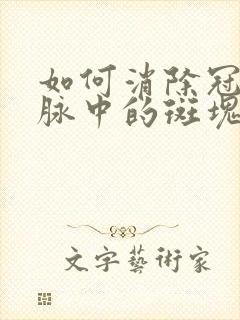 如何消除冠
脉中的斑塊
文字藝術家